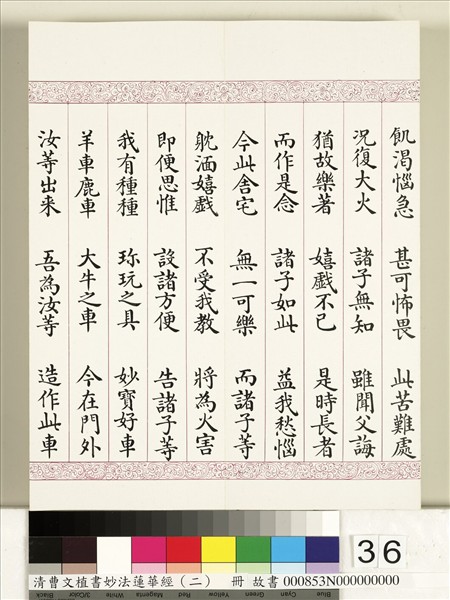 飢渴惱急 甚可怖畏 此苦難處
況復大火 諸子無知 雖聞父誨
猶故樂著 嬉戲不已 是時長者
而作是念 諸子如此 益我愁惱
今此舍宅 無一可樂 而諸子等
躭湎嬉戲 不受我教 將為火害
即便思惟 設諸方便 告諸子等
我有種種 珎玩之具 妙寶好車
羊車鹿車 大牛之車 今在門外
汝等出来 吾為汝等 造作此車
36
清曹文植書妙法蓮華經（二） 冊 故書 000853N000000000
Black
3/Color
White
Magenta
Red
Yellow
Green
Cyan
Blue